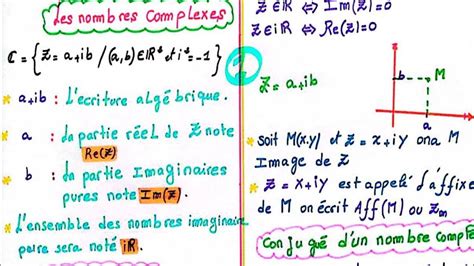 Les nombres Complexes
ℂ = { Z = a+ib / (a,b) ∈ IR² et i² = -1 }
* a+ib : L'ecriture algébrique.
* a : La partie réel de Z note
Re(Z)
* b : la partie Imaginaires
pures note Im(Z).
* L'ensemble des nombres imaginaire
pure sera noté iR.
Z ∈ IR ⇔ Im(Z)=0
Z ∈ iR ⇔ Re(Z)=0
Z = a+ib
b
M
a
* soit M(x.y) et Z = x+iy on a M
Image de Z
* Z = x+iy est appelé l'affixe
de M on écrit Aff(M) ou Zm
Conjugué d'un nombre comple